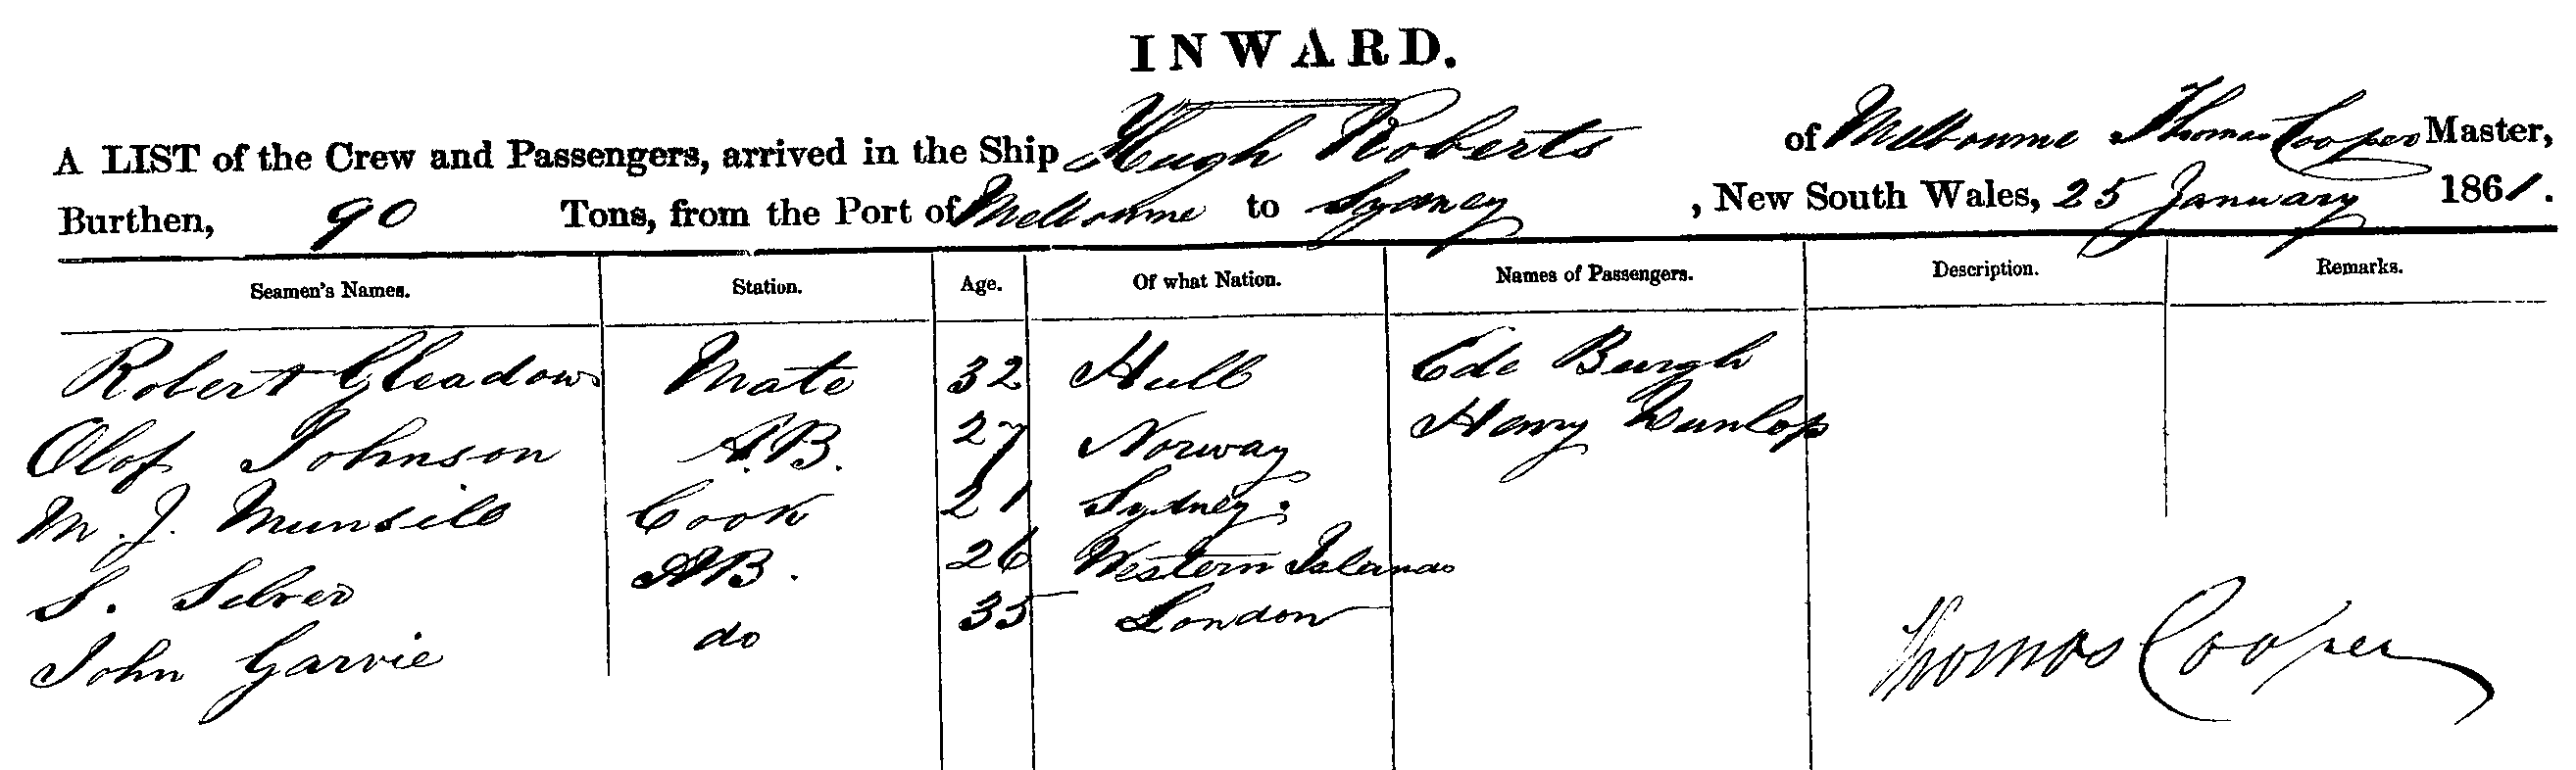 INWARD.
A LIST of the Crew and Passengers, arrived in the Ship Hugh Roberts of Melbourne Thomas Cooper Master,
Burthen, 90 Tons, from the Port of Melbourne to Sydney, New South Wales, 25 January 1861.
Seamen's Names. Station. Age. Of what Nation. Names of Passengers. Description. Remarks.
Robert Gleadow Mate 32 Hull Ede Burgh
Olof Johnson A.B. 27 Norway Henry Dunlop
M. J. Munsell Cook 21 Sydney.
S. Selver AB. 26 Western Islands
John Garvie do 35 London
Thomas Cooper